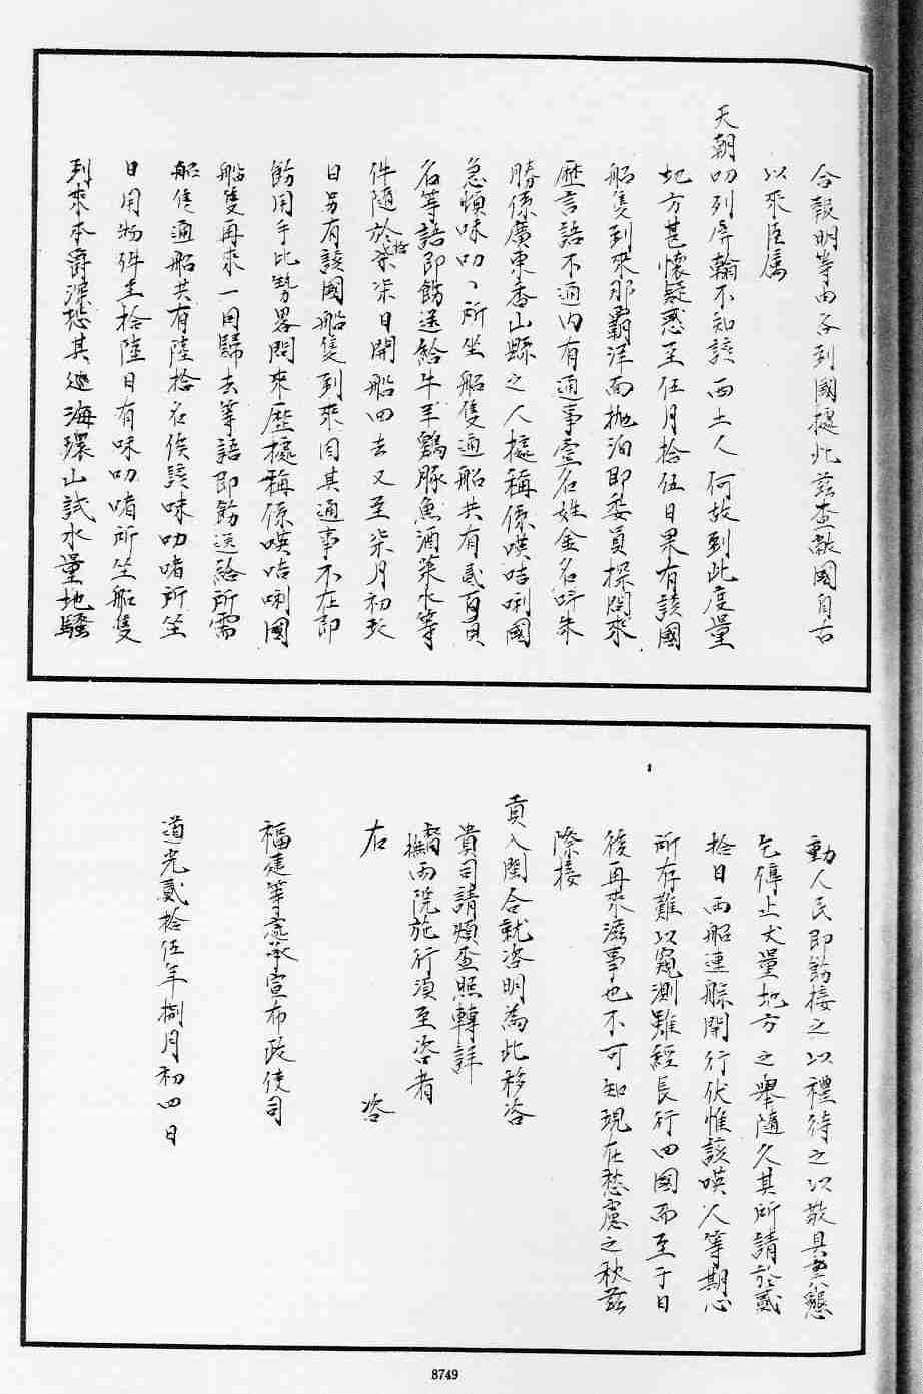 合報明等由各到國據此茲查敝國自古
以來臣属
天朝叨列屏翰不知該西土人何故到此度量
地方甚懷疑惑至伍月拾伍日果有該國
船隻到來那霸洋面抛泊即委員探問來
歷言語不通內有通事壹名姓金名呼朱
勝係廣東香山縣之人據稱係嘆咭唎國
急頓味叻〻所坐船隻通船共有貳百員
名等語即飭送給牛羊鷄豚魚酒菜水等
件隨於拾柒日開船回去又至柒月初玖
日另有該國船隻到來因其通事不在即
飭用手比勢畧問來歷據稱係嘆咭唎國
船隻再來一同歸去等語即飭送給所需
船隻通船共有陸拾名俟該味叻啫所坐
日用物件至拾陸日有味叻啫所坐船隻
到來本爵深恐其迯海環山試水量地騷
動人民即飭接之以禮待之以敬具禀懇
乞停止丈量地方之舉隨允其所請於貳
拾日兩船連䑸開行伏惟該嘆人等期心
所存難以窺測雖經長行回國而至于日
後再來滋事也不可知現在愁慮之秋茲
際接
貢入閩合就咨明為此移咨
貴司請煩查照轉詳
督撫兩院施行須至咨者
右 咨
福建等處承宣布政使司
道光貳拾伍年捌月初四日
8749